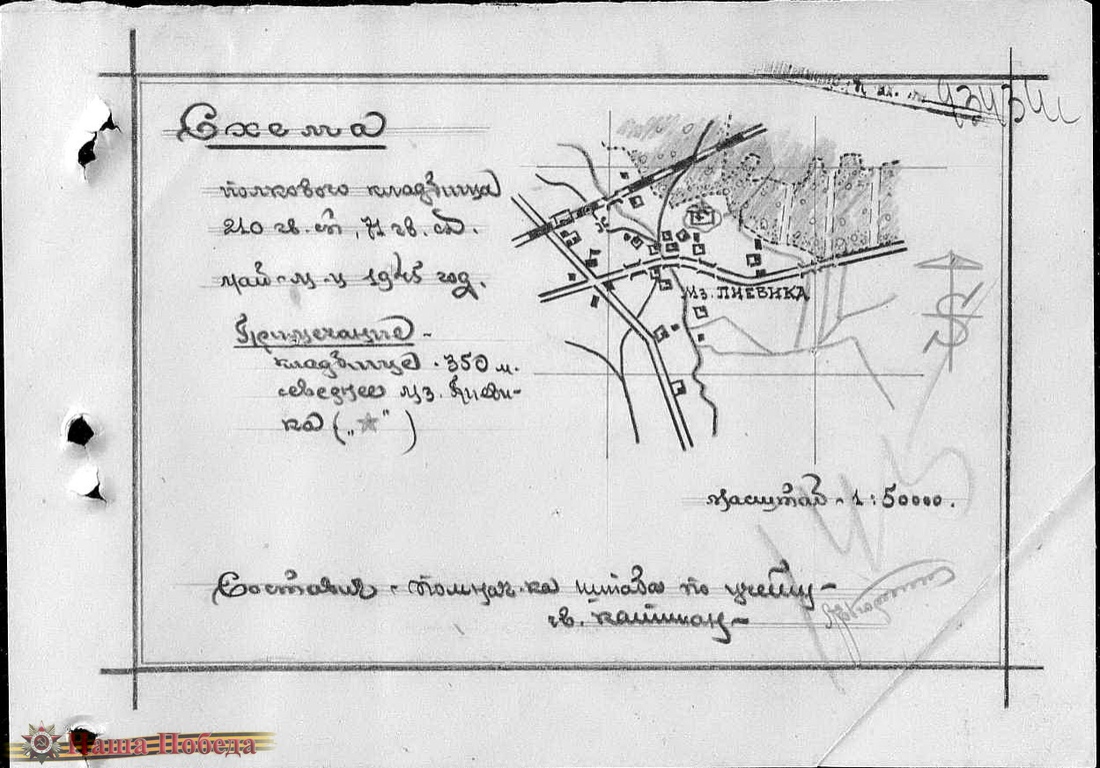 Схема
полкового кладбища
210 гв. сп, 71 гв. сд.
май м-ц 1945 год.
Примечание -
кладбище - 350 м.
севернее мз. Лиеви-
ка („★")
МЗ. ЛИЕВИКА
масштаб - 1:50000.
Составил - помнач-ка штаба по учету -
гв. капитан -
Наша Победа